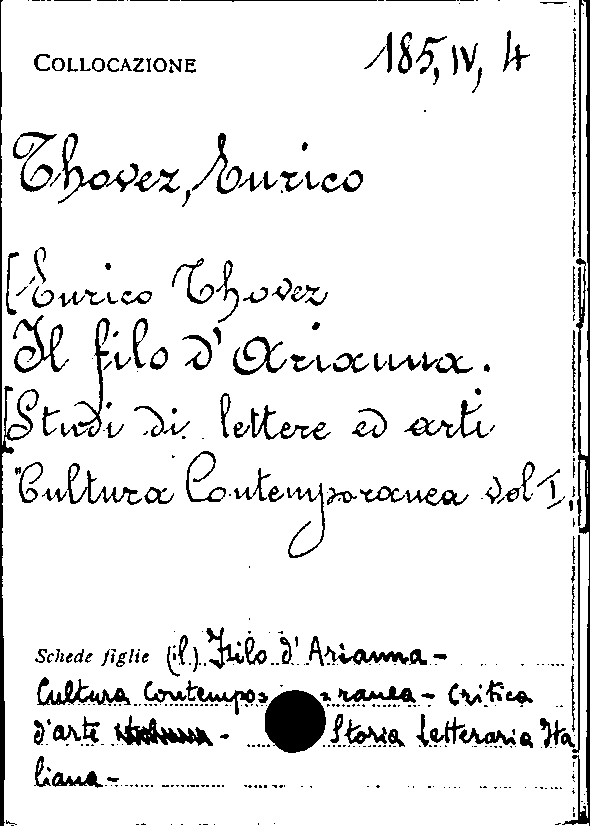 COLLOCAZIONE 185, IV, 4
Thovez, Enrico
[Enrico Thovez
Il filo d'Arianna.
[Studi di lettere ed arti
"Cultura Contemporanea vol I,
Schede figlie (il) Filo d'Arianna -
Cultura Contempo= =ranea - Critica
d'arte - Storia Letteraria Ita
liana -